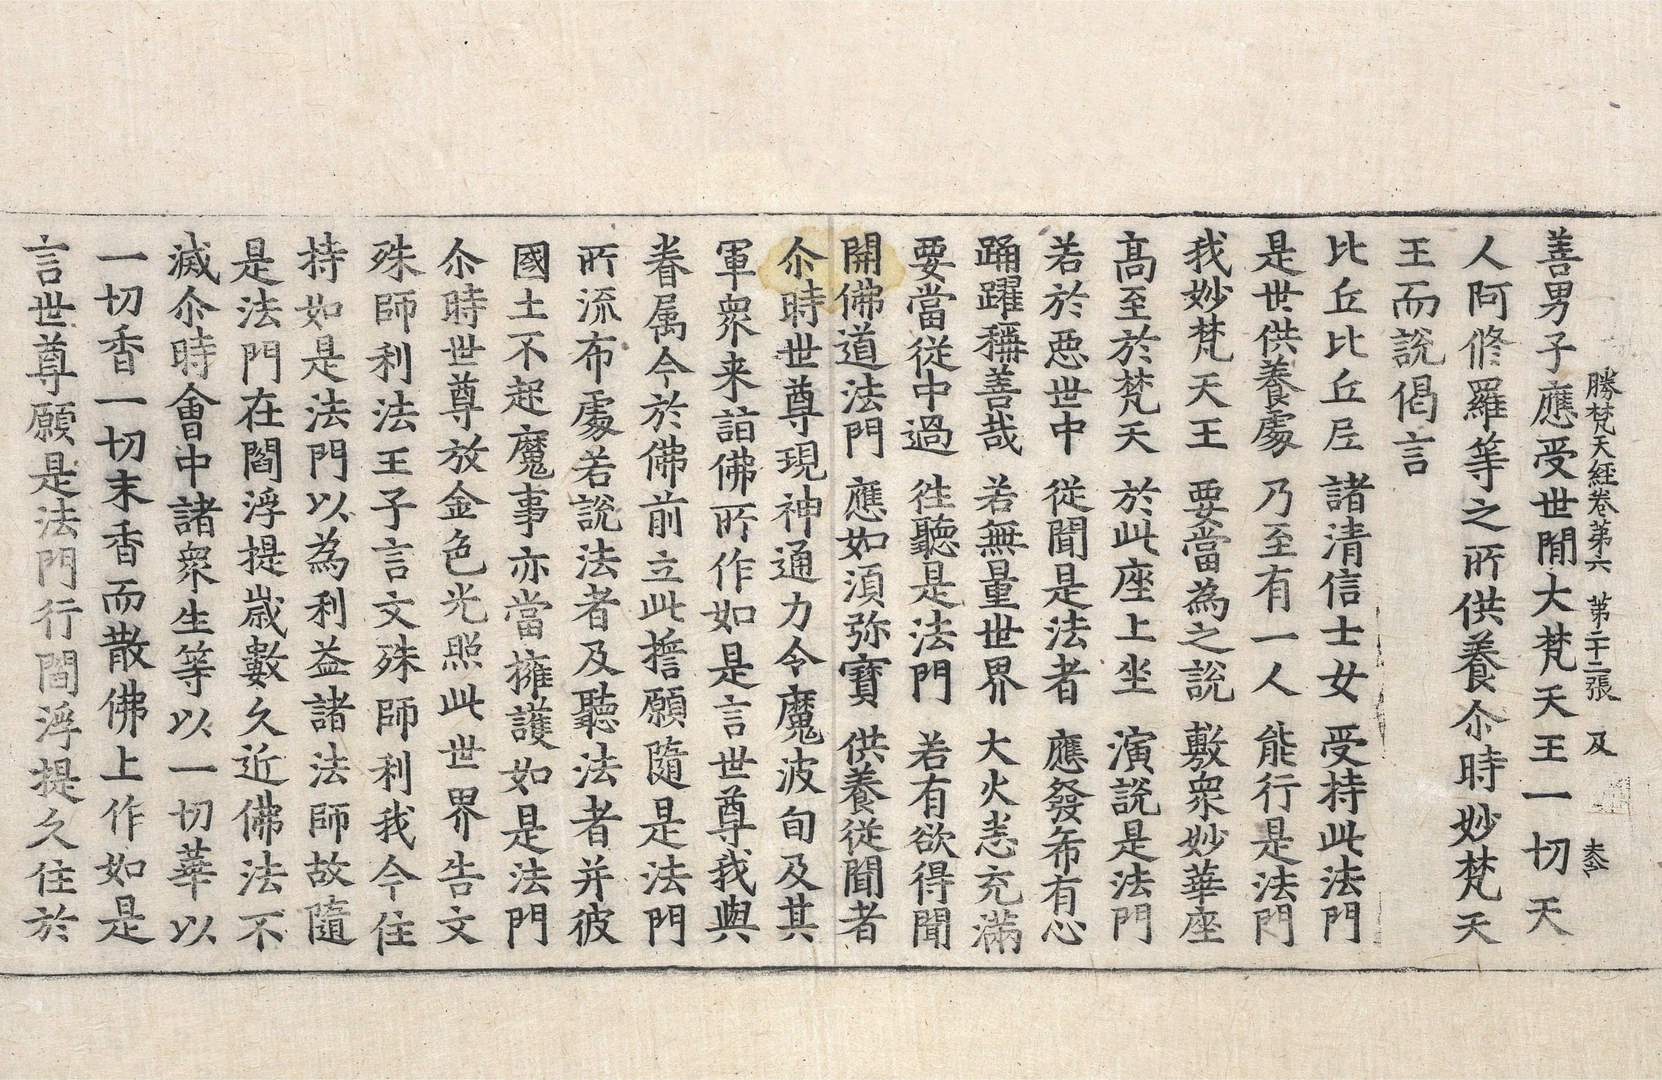 善男子應受世間大梵天王一切天
勝梵天經卷第六 第二十二張 及
人阿修羅等之所供養尒時妙梵天
王而說偈言
比丘比丘尼 諸清信士女 受持此法門
是世供養處 乃至有一人 能行是法門
我妙梵天王 要當為之說 敷衆妙華座
高至於梵天 於此座上坐 演說是法門
若於惡世中 從聞是法者 應發希有心
踊躍稱善哉 若無量世界 大火恙充滿
要當從中過 徃聽是法門 若有欲得聞
開佛道法門 應如須弥寶 供養從聞者
尒時世尊現神通力令魔波旬及其
軍衆来詣佛所作如是言世尊我與
眷属今於佛前立此擔願隨是法門
所流布處若說法者及聽法者并彼
國土不起魔事亦當擁護如是法門
尒時世尊放金色光照此世界告文
殊師利法王子言文殊師利我今住
持如是法門以為利益諸法師故隨
是法門在閻浮提歲數久近佛法不
滅尒時會中諸衆生等以一切華以
一切香一切末香而散佛上作如是
言世尊願是法門行閻浮提久住於